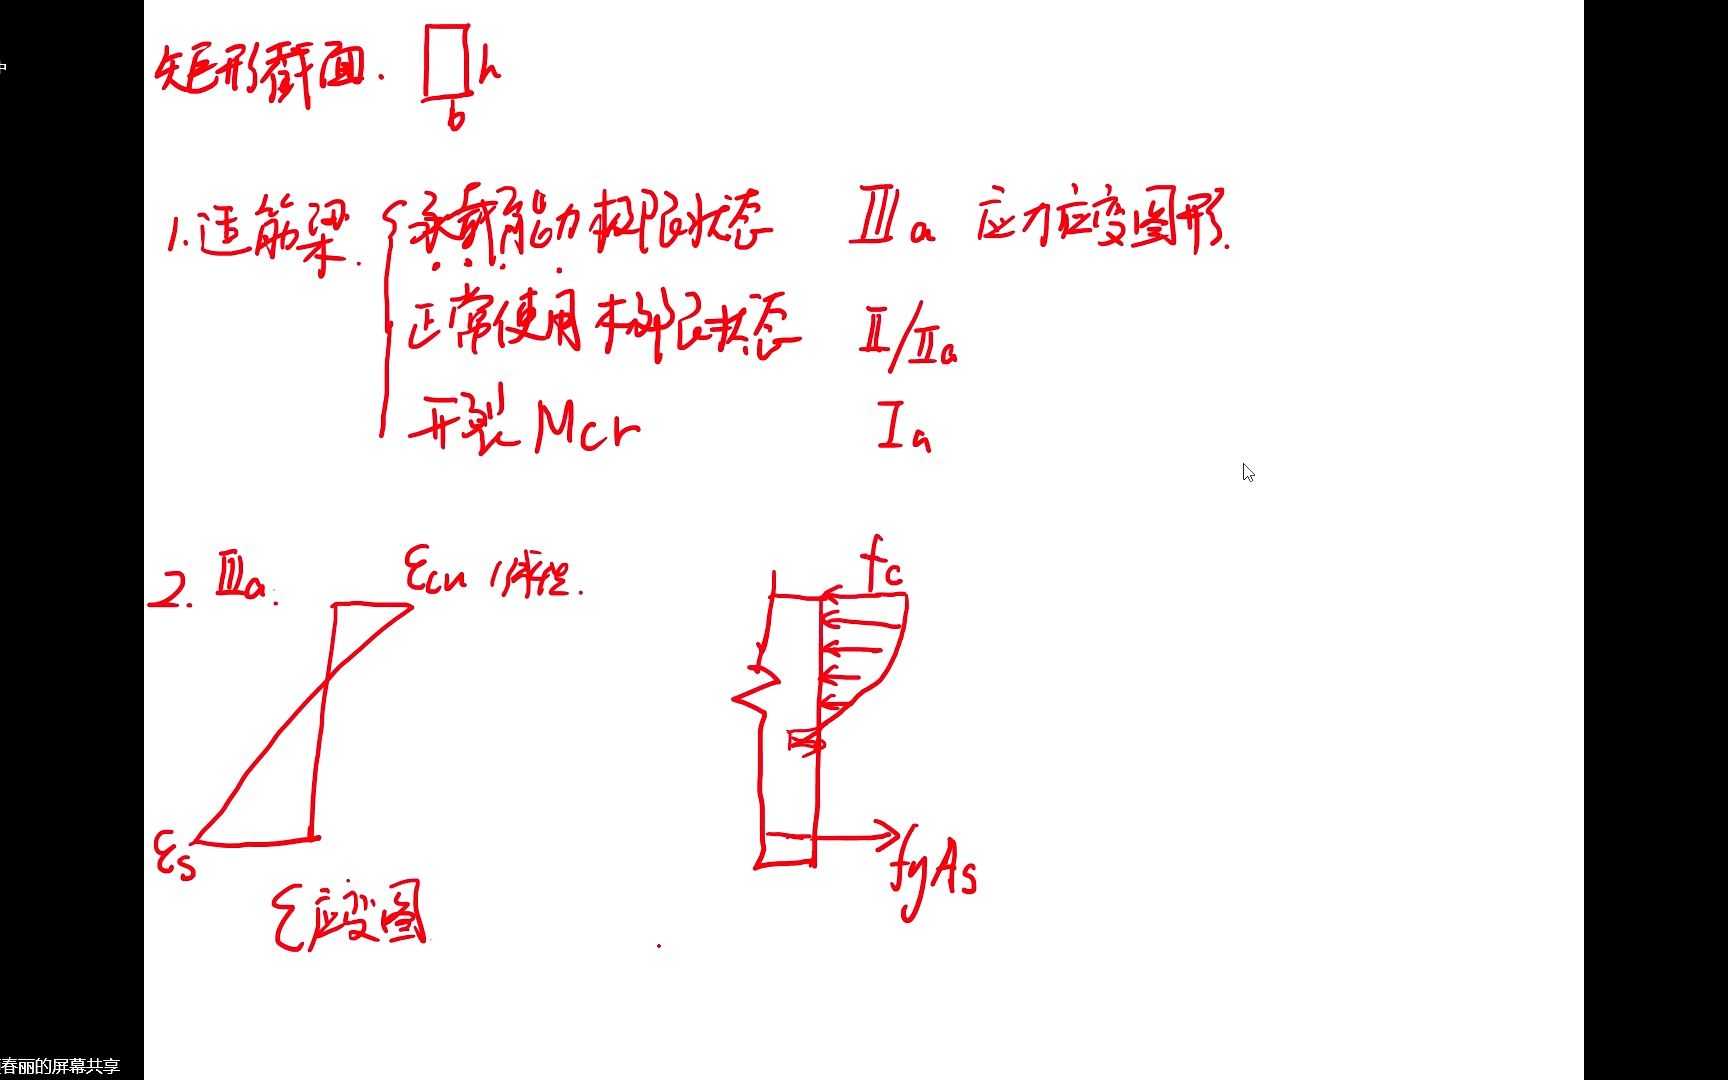 中
矩形截面. h
b
1. 适筋梁. 承载能力极限状态 Ⅲa 应力应变图形.
正常使用极限状态 Ⅱ/Ⅱa
开裂 Mcr Ⅰa
2. Ⅲa. εcu fc
εs fyAs
ε应变图
春丽的屏幕共享